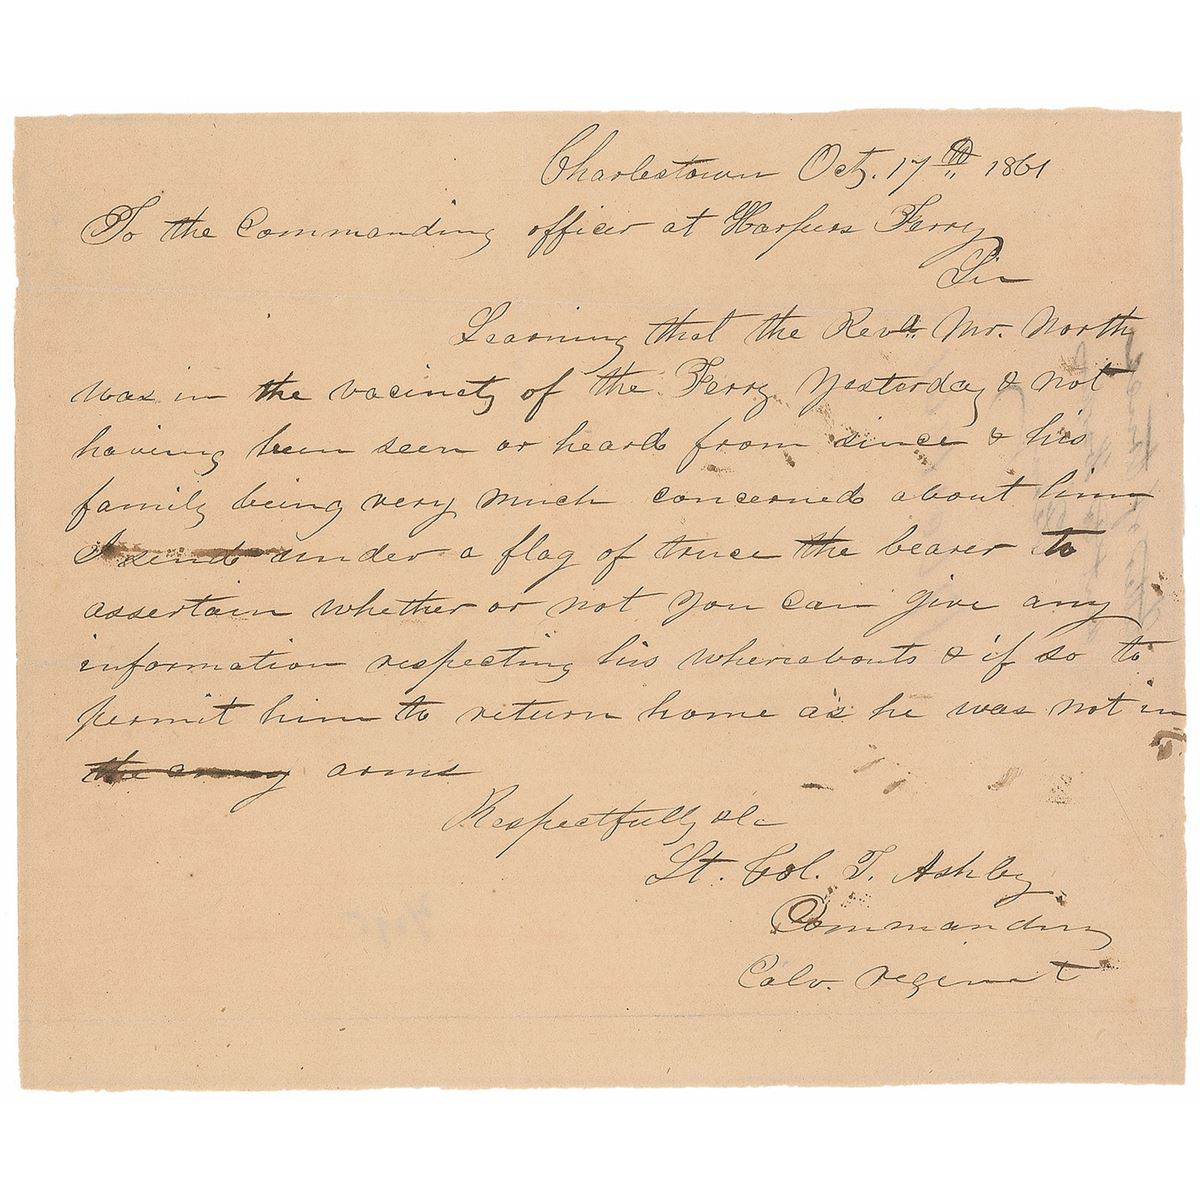 Charlestown Oct. 17th 1861
To the Commanding officer at Harpers Ferry
Sir
Learning that the Revd. Mr. North
was in the vacinity of the Ferry yesterday & not
having been seen or heard from since & his
family being very much concerned about him
I send under a flag of truce the bearer to
assertain whether or not you can give any
information respecting his whereabouts & if so to
permit him to return home as he was not in
the army arms
Respectfully &c
Lt. Col. T. Ashby
Commanding
Calv. regiment